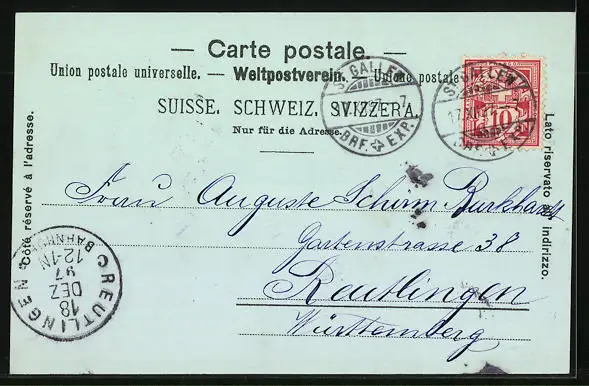 — Carte postale. —
Union postale universelle. — Weltpostverein. — Unione postale
SUISSE. SCHWEIZ. SVIZZERA.
Nur für die Adresse.
Côté réservé à l'adresse.
Lato riservato all' indirizzo.
ST. GALLEN
17.XII.97.-7
BRF. EXP.
ST. GALLEN
17.XII.97.-7
BRF. EXP.
10
Frau Auguste Schirm Burkhardt
Gartenstrasse 38
Reutlingen
Württemberg
REUTLINGEN
BAHNHOF
12-1N
97
DEZ
18
C